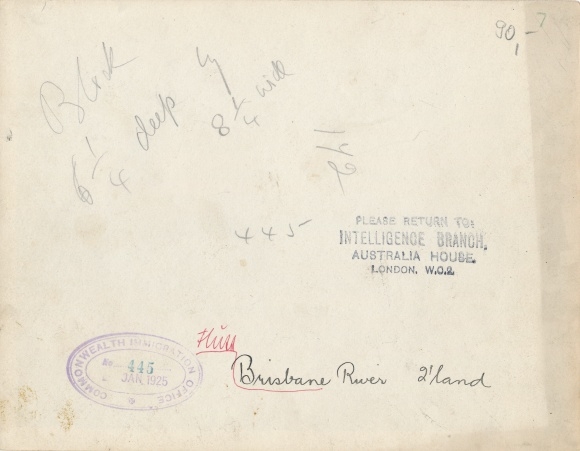 90,-
7
Block
6 1/4 deep by
8 1/4 wide
172
445
PLEASE RETURN TO:
INTELLIGENCE BRANCH,
AUSTRALIA HOUSE.
LONDON, W.C.2.
COMMONWEALTH IMMIGRATION OFFICE
445
JAN 1925
Fluss
Brisbane River Q'land